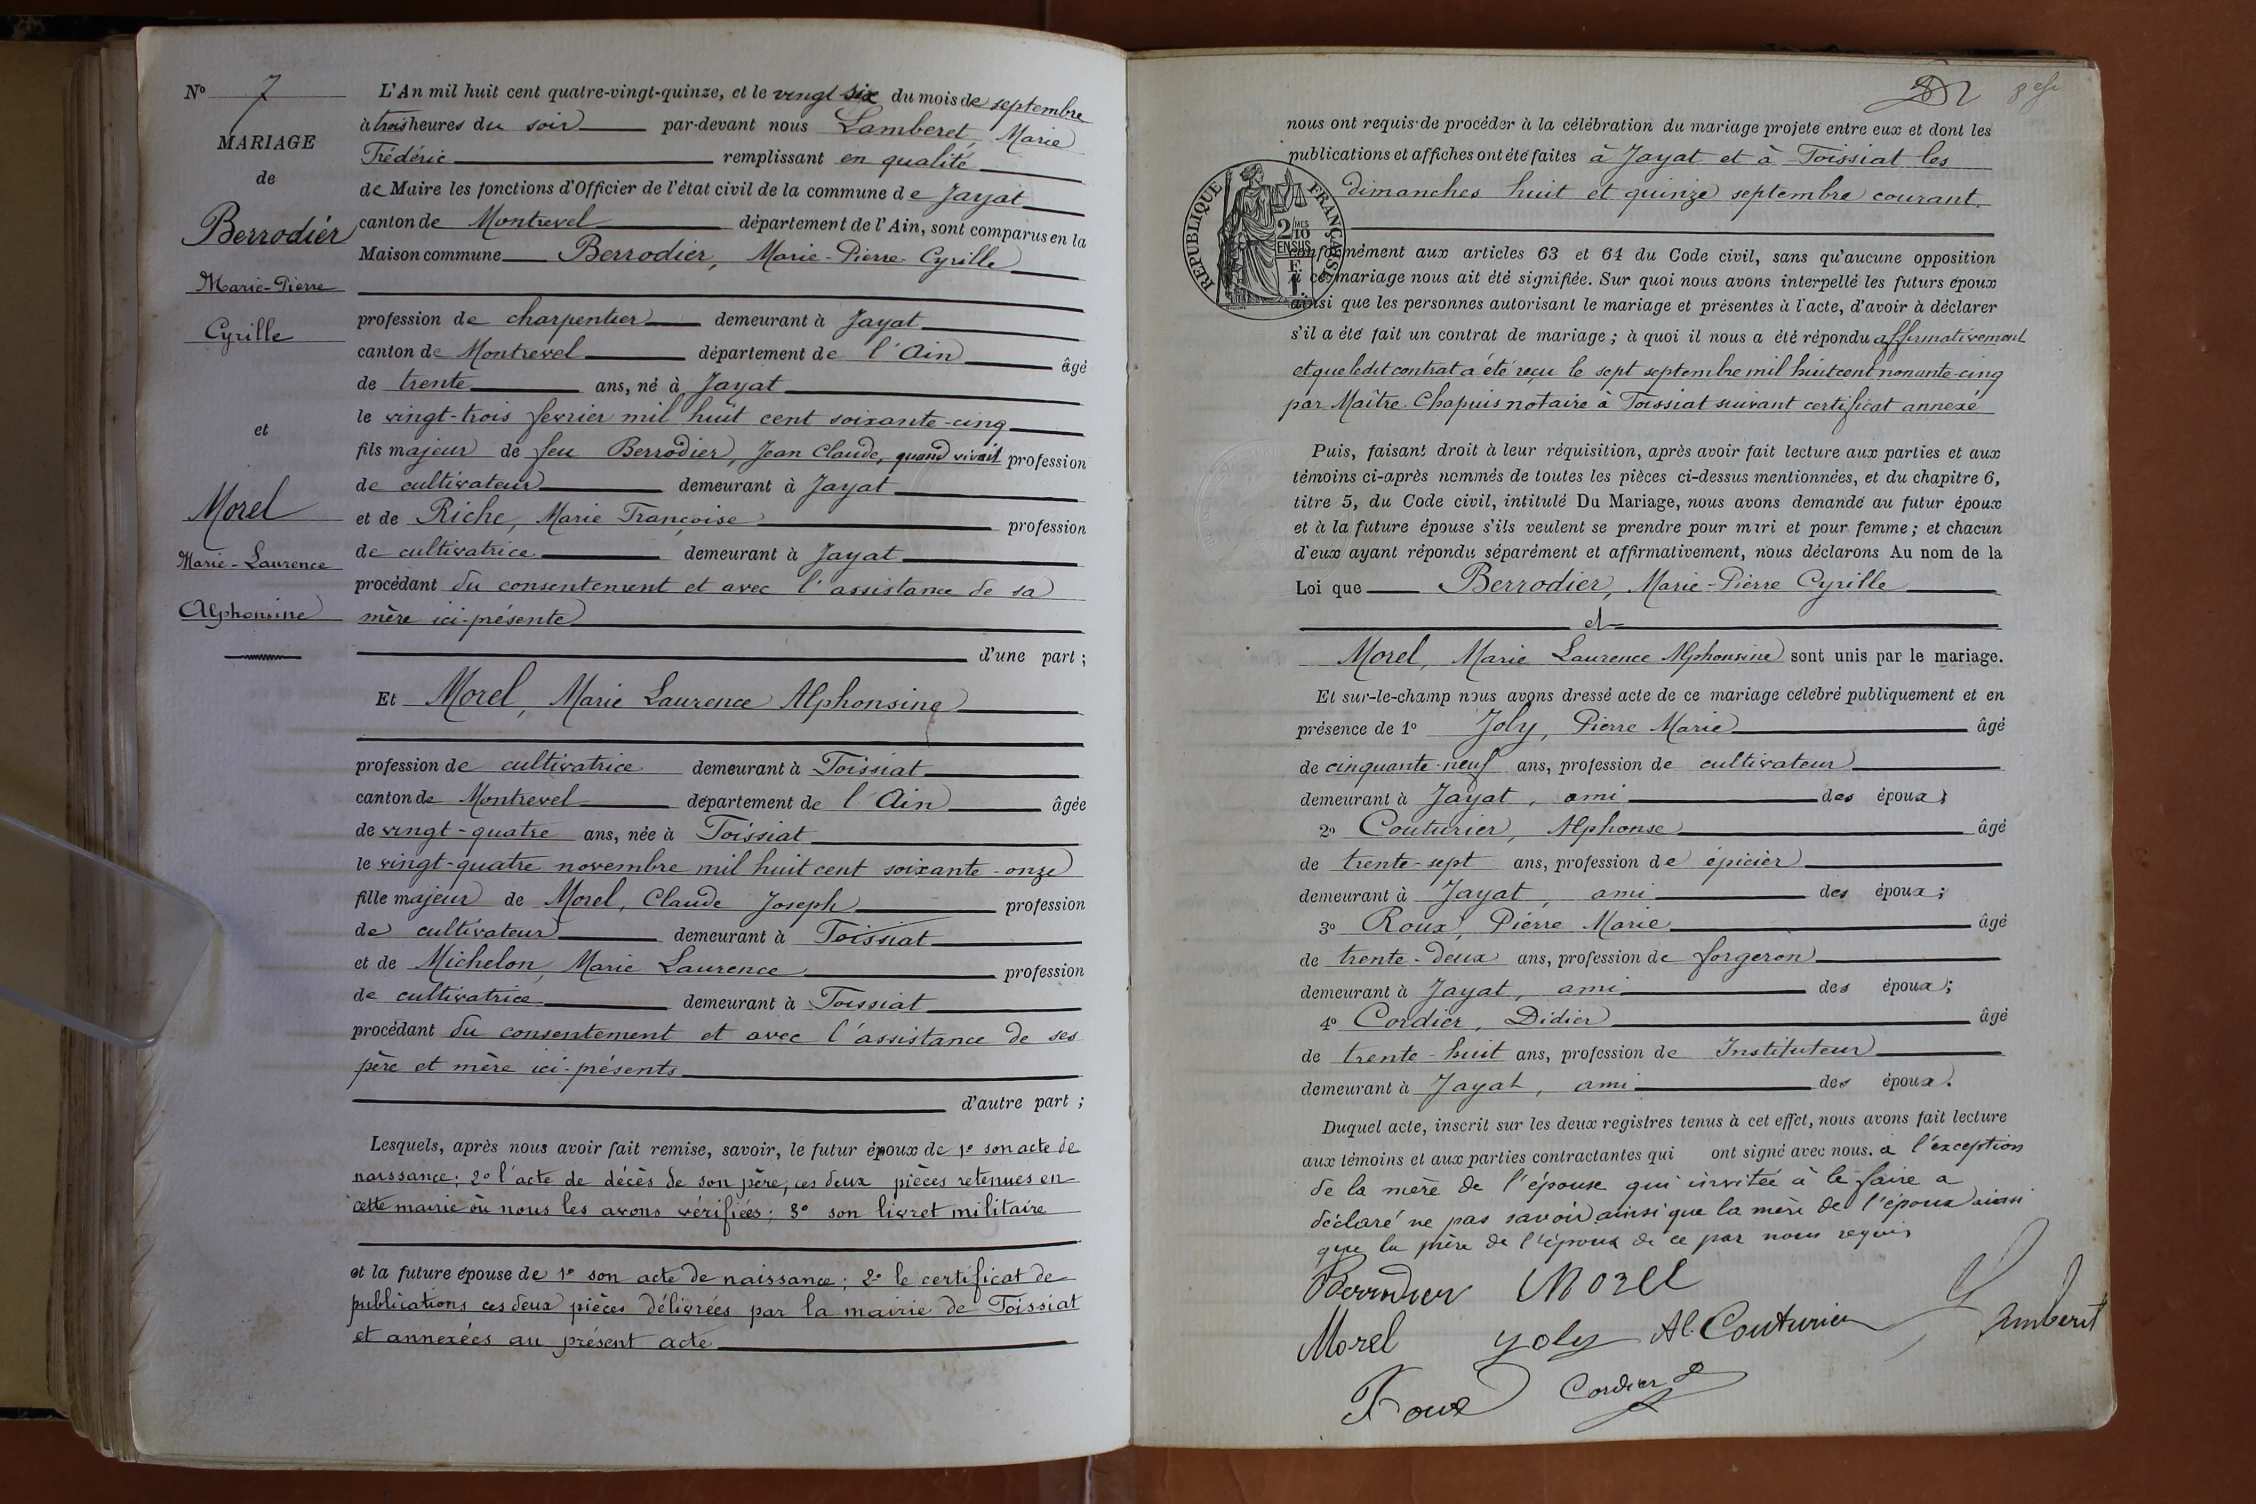 Nº 7
MARIAGE
de
Berrodier
Marie-Pierre
Cyrille
et
Morel
Marie-Laurence
Alphonsine
L'An mil huit cent quatre-vingt-quinze, et le vingt six du mois de septembre
à trois heures du soir par-devant nous Lamberet, Marie
Frédéric remplissant en qualité
de Maire les fonctions d'Officier de l'état civil de la commune de Jayat
canton de Montrevel département de l'Ain, sont comparus en la
Maison commune Berrodier, Marie-Pierre-Cyrille
profession de charpentier demeurant à Jayat
canton de Montrevel département de l'Ain âgé
de trente ans, né à Jayat
le vingt-trois fevrier mil huit cent soixante-cinq
fils majeur de feu Berrodier, Jean Claude, quand vivait profession
de cultivateur demeurant à Jayat
et de Riche, Marie Françoise profession
de cultivatrice demeurant à Jayat
procédant du consentement et avec l'assistance de sa
mère ici-présente
d'une part ;
Et Morel, Marie Laurence Alphonsine
profession de cultivatrice demeurant à Foissiat
canton de Montrevel département de l'Ain âgée
de vingt-quatre ans, née à Foissiat
le vingt-quatre novembre mil huit cent soixante-onze
fille majeur de Morel, Claude Joseph profession
de cultivateur demeurant à Foissiat
et de Michelon, Marie Laurence profession
de cultivatrice demeurant à Foissiat
procédant du consentement et avec l'assistance de ses
père et mère ici-présents
d'autre part ;
Lesquels, après nous avoir fait remise, savoir, le futur époux de 1º son acte de
naissance ; 2º l'acte de décès de son père, ces deux pièces retenues en
cette mairie où nous les avons vérifiées ; 3º son livret militaire
et la future épouse de 1º son acte de naissance ; 2º le certificat de
publications ces deux pièces délivrées par la mairie de Foissiat
et annexées au présent acte
nous ont requis de procéder à la célébration du mariage projeté entre eux et dont les
publications et affiches ont été faites à Jayat et à Foissiat les
dimanches huit et quinze septembre courant.
REPUBLIQUE FRANÇAISE
2/10 MES
EN SUS
conformément aux articles 63 et 64 du Code civil, sans qu'aucune opposition
à ce mariage nous ait été signifiée. Sur quoi nous avons interpellé les futurs époux
ainsi que les personnes autorisant le mariage et présentes à l'acte, d'avoir à déclarer
s'il a été fait un contrat de mariage ; à quoi il nous a été répondu affirmativement
et que ledit contrat a été reçu le sept septembre mil huit cent nonante-cinq
par Maître Chapuis notaire à Foissiat suivant certificat annexé
Puis, faisant droit à leur réquisition, après avoir fait lecture aux parties et aux
témoins ci-après nommés de toutes les pièces ci-dessus mentionnées, et du chapitre 6,
titre 5, du Code civil, intitulé Du Mariage, nous avons demandé au futur époux
et à la future épouse s'ils veulent se prendre pour mari et pour femme ; et chacun
d'eux ayant répondu séparément et affirmativement, nous déclarons Au nom de la
Loi que Berrodier, Marie-Pierre Cyrille
et
Morel, Marie Laurence Alphonsine sont unis par le mariage.
Et sur-le-champ nous avons dressé acte de ce mariage célébré publiquement et en
présence de 1º Joly, Pierre Marie âgé
de cinquante-neuf ans, profession de cultivateur
demeurant à Jayat, ami des époux ;
2º Couturier, Alphonse âgé
de trente-sept ans, profession de épicier
demeurant à Jayat, ami des époux ;
3º Roux, Pierre Marie âgé
de trente-deux ans, profession de forgeron
demeurant à Jayat, ami des époux ;
4º Cordier, Didier âgé
de trente-huit ans, profession de Instituteur
demeurant à Jayat, ami des époux.
Duquel acte, inscrit sur les deux registres tenus à cet effet, nous avons fait lecture
aux témoins et aux parties contractantes qui ont signé avec nous. à l'exception
de la mère de l'épouse qui invitée à le faire a
déclaré ne pas savoir ainsi que la mère de l'époux ainsi
que la mère de l'époux de ce par nous requis
Berrodier Morel
Morel Joly Al. Couturier Lamberet
Roux Cordier D